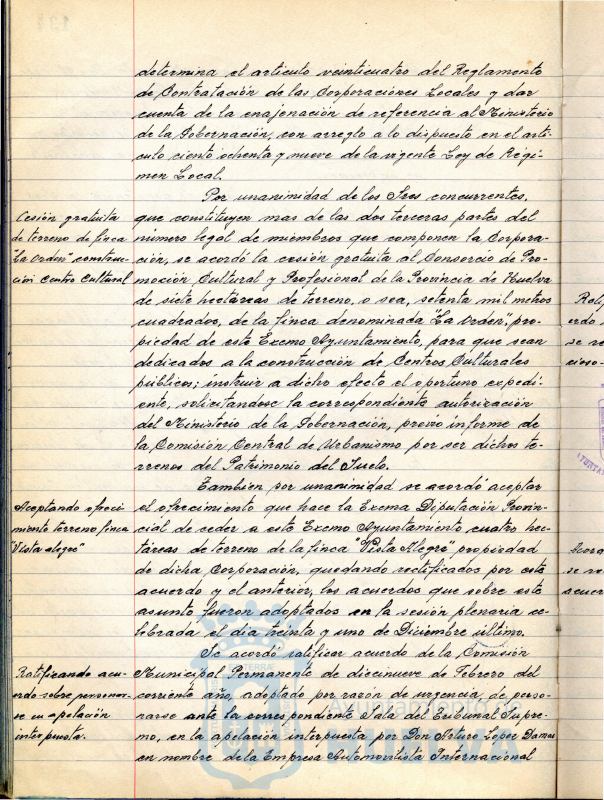 determina el articulo veinticuatro del Reglamento
de Contratación de las Corporaciones Locales y dar
cuenta de la enajenación de referencia al Ministerio
de la Gobernación, con arreglo a lo dispuesto en el artí-
culo ciento ochenta y nueve de la vigente Ley de Régi-
men Local.
Por unanimidad de los Sres concurrentes,
que constituyen mas de las dos terceras partes del
número legal de miembros que componen la Corpora-
ción, se acordó la cesión gratuita al Consorcio de Pro-
moción Cultural y Profesional de la Provincia de Huelva
de siete hectáreas de terreno, o sea, setenta mil metros
cuadrados, de la finca denominada "La Orden", pro-
piedad de este Excmo Ayuntamiento, para que sean
dedicados a la construcción de Centros Culturales
públicos; instruir a dicho efecto el oportuno expedi-
ente, solicitandose la correspondiente autorización
del Ministerio de la Gobernación, previo informe de
la Comisión Central de Urbanismo por ser dichos te-
rrenos del Patrimonio del Suelo.
Cesión gratuita
de terreno de finca
"La Orden" construc-
ción Centro Cultural
Tambien por unanimidad se acordó aceptar
el ofrecimiento que hace la Excma Diputación Provin-
cial de ceder a este Excmo Ayuntamiento cuatro hec-
táreas de terreno de la finca "Vista Alegre" propiedad
de dicha Corporación, quedando rectificados por este
acuerdo y el anterior, los acuerdos que sobre este
asunto fueron adoptados en la sesión plenaria ce-
lebrada el día treinta y uno de Diciembre último.
Aceptando ofreci-
miento terreno finca
"Vista alegre"
Se acordó ratificar acuerdo de la Comisión
Municipal Permanente de diecinueve de Febrero del
corriente año, adoptado por razón de urgencia, de perso-
narse ante la correspondiente Sala del Tribunal Supre-
mo, en la apelación interpuesta por Don Arturo Lopez Damas
en nombre de la Empresa Automovilista Internacional
Ratificando acu-
erdo sobre personar-
se en apelación
interpuesta.
Ayuntamiento de
HUELVA